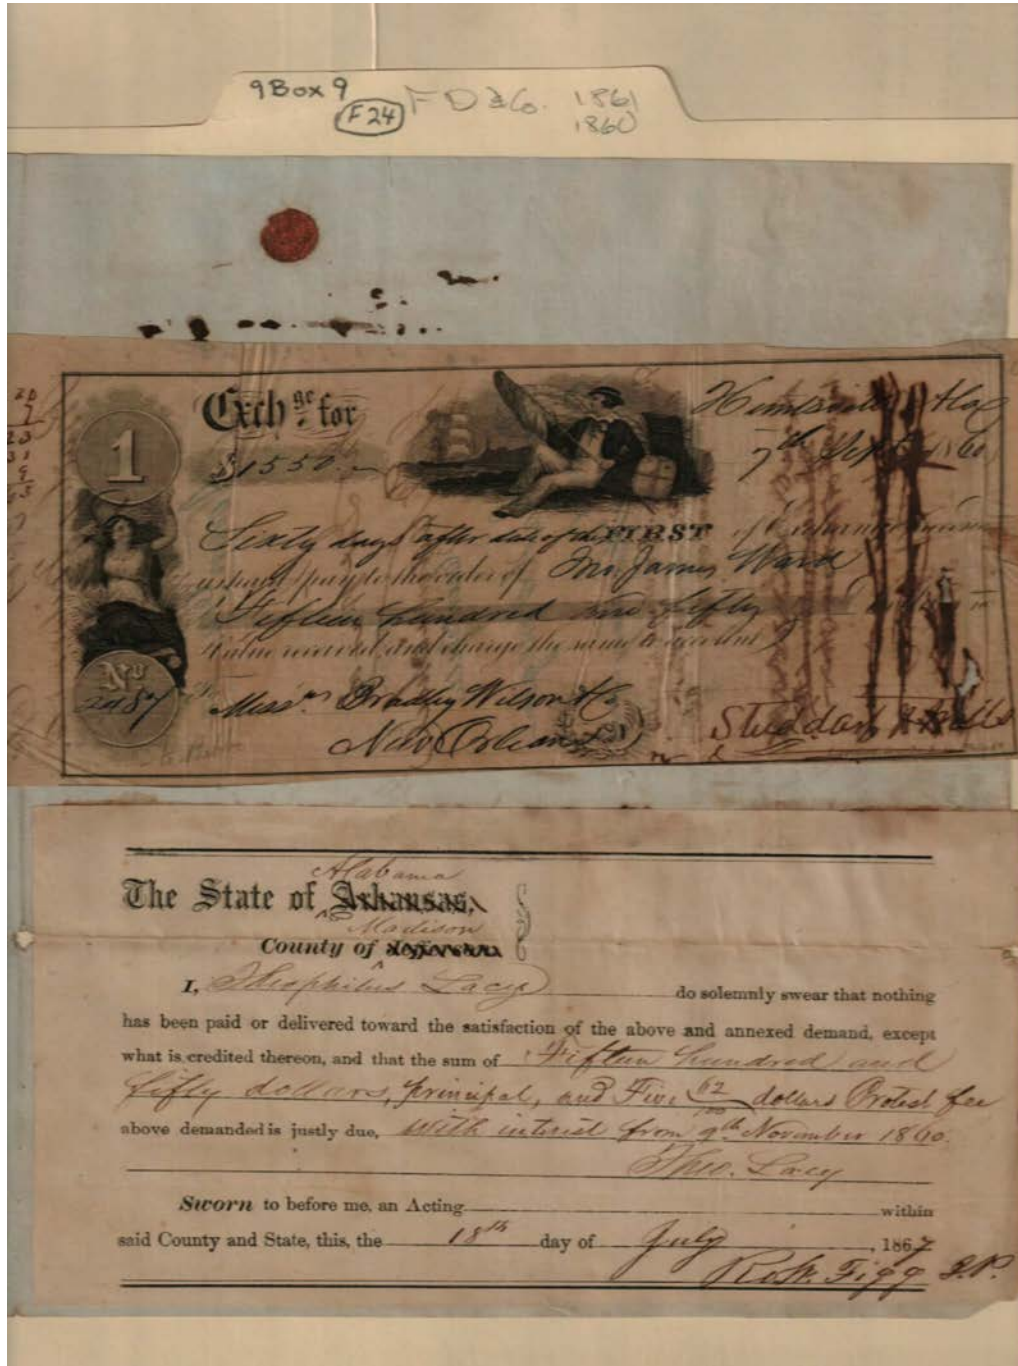 9 Box 9
F24
F D & Co. 1861
1860
1
Exchge for
$1550.
Huntsville Ala
7th Sept 1860
Sixty days after date of this FIRST of Exchange
pay to the order of Jno. James Ward
Fifteen hundred and fifty
Value received, and charge the same to account
No
2487
To
Messrs Bradley Wilson & Co
New Orleans
The State of Arkansas,
Alabama
Madison
County of
I, Theophilus Lacy do solemnly swear that nothing
has been paid or delivered toward the satisfaction of the above and annexed demand, except
what is credited thereon, and that the sum of Fifteen hundred and
fifty dollars, principal, and Five 62/100 dollars Protest fee
above demanded is justly due, with interest from 9th November 1860.
Theo. Lacy
Sworn to before me, an Acting within
said County and State, this, the 18th day of July, 1867
Ro. W. Figg J.P.